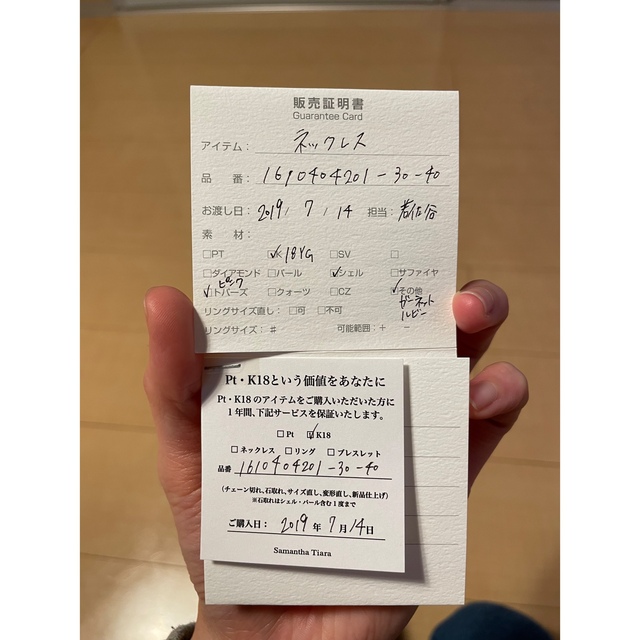 販売証明書
Guarantee Card
アイテム： ネックレス
品 番： 1610404201-30-40
お渡し日： 2019 / 7 / 14 担当： 岩佐谷
素 材：
□PT ☑K 18YG □SV □
□ダイアモンド □パール ☑シェル □サファイヤ
ピンク
☑トパーズ □クォーツ □CZ ☑その他
ガーネット
ルビー
リングサイズ直し：□可 □不可
リングサイズ：＃ 可能範囲：＋ －
Pt・K18という価値をあなたに
Pt・K18のアイテムをご購入いただいた方に
1年間、下記サービスを保証いたします。
□Pt ☑K18
□ネックレス □リング □ブレスレット
品番 1610404201-30-40
（チェーン切れ、石取れ、サイズ直し、変形直し、新品仕上げ）
※石取れはシェル・パール含む1度まで
ご購入日： 2019 年 7 月 14 日
Samantha Tiara